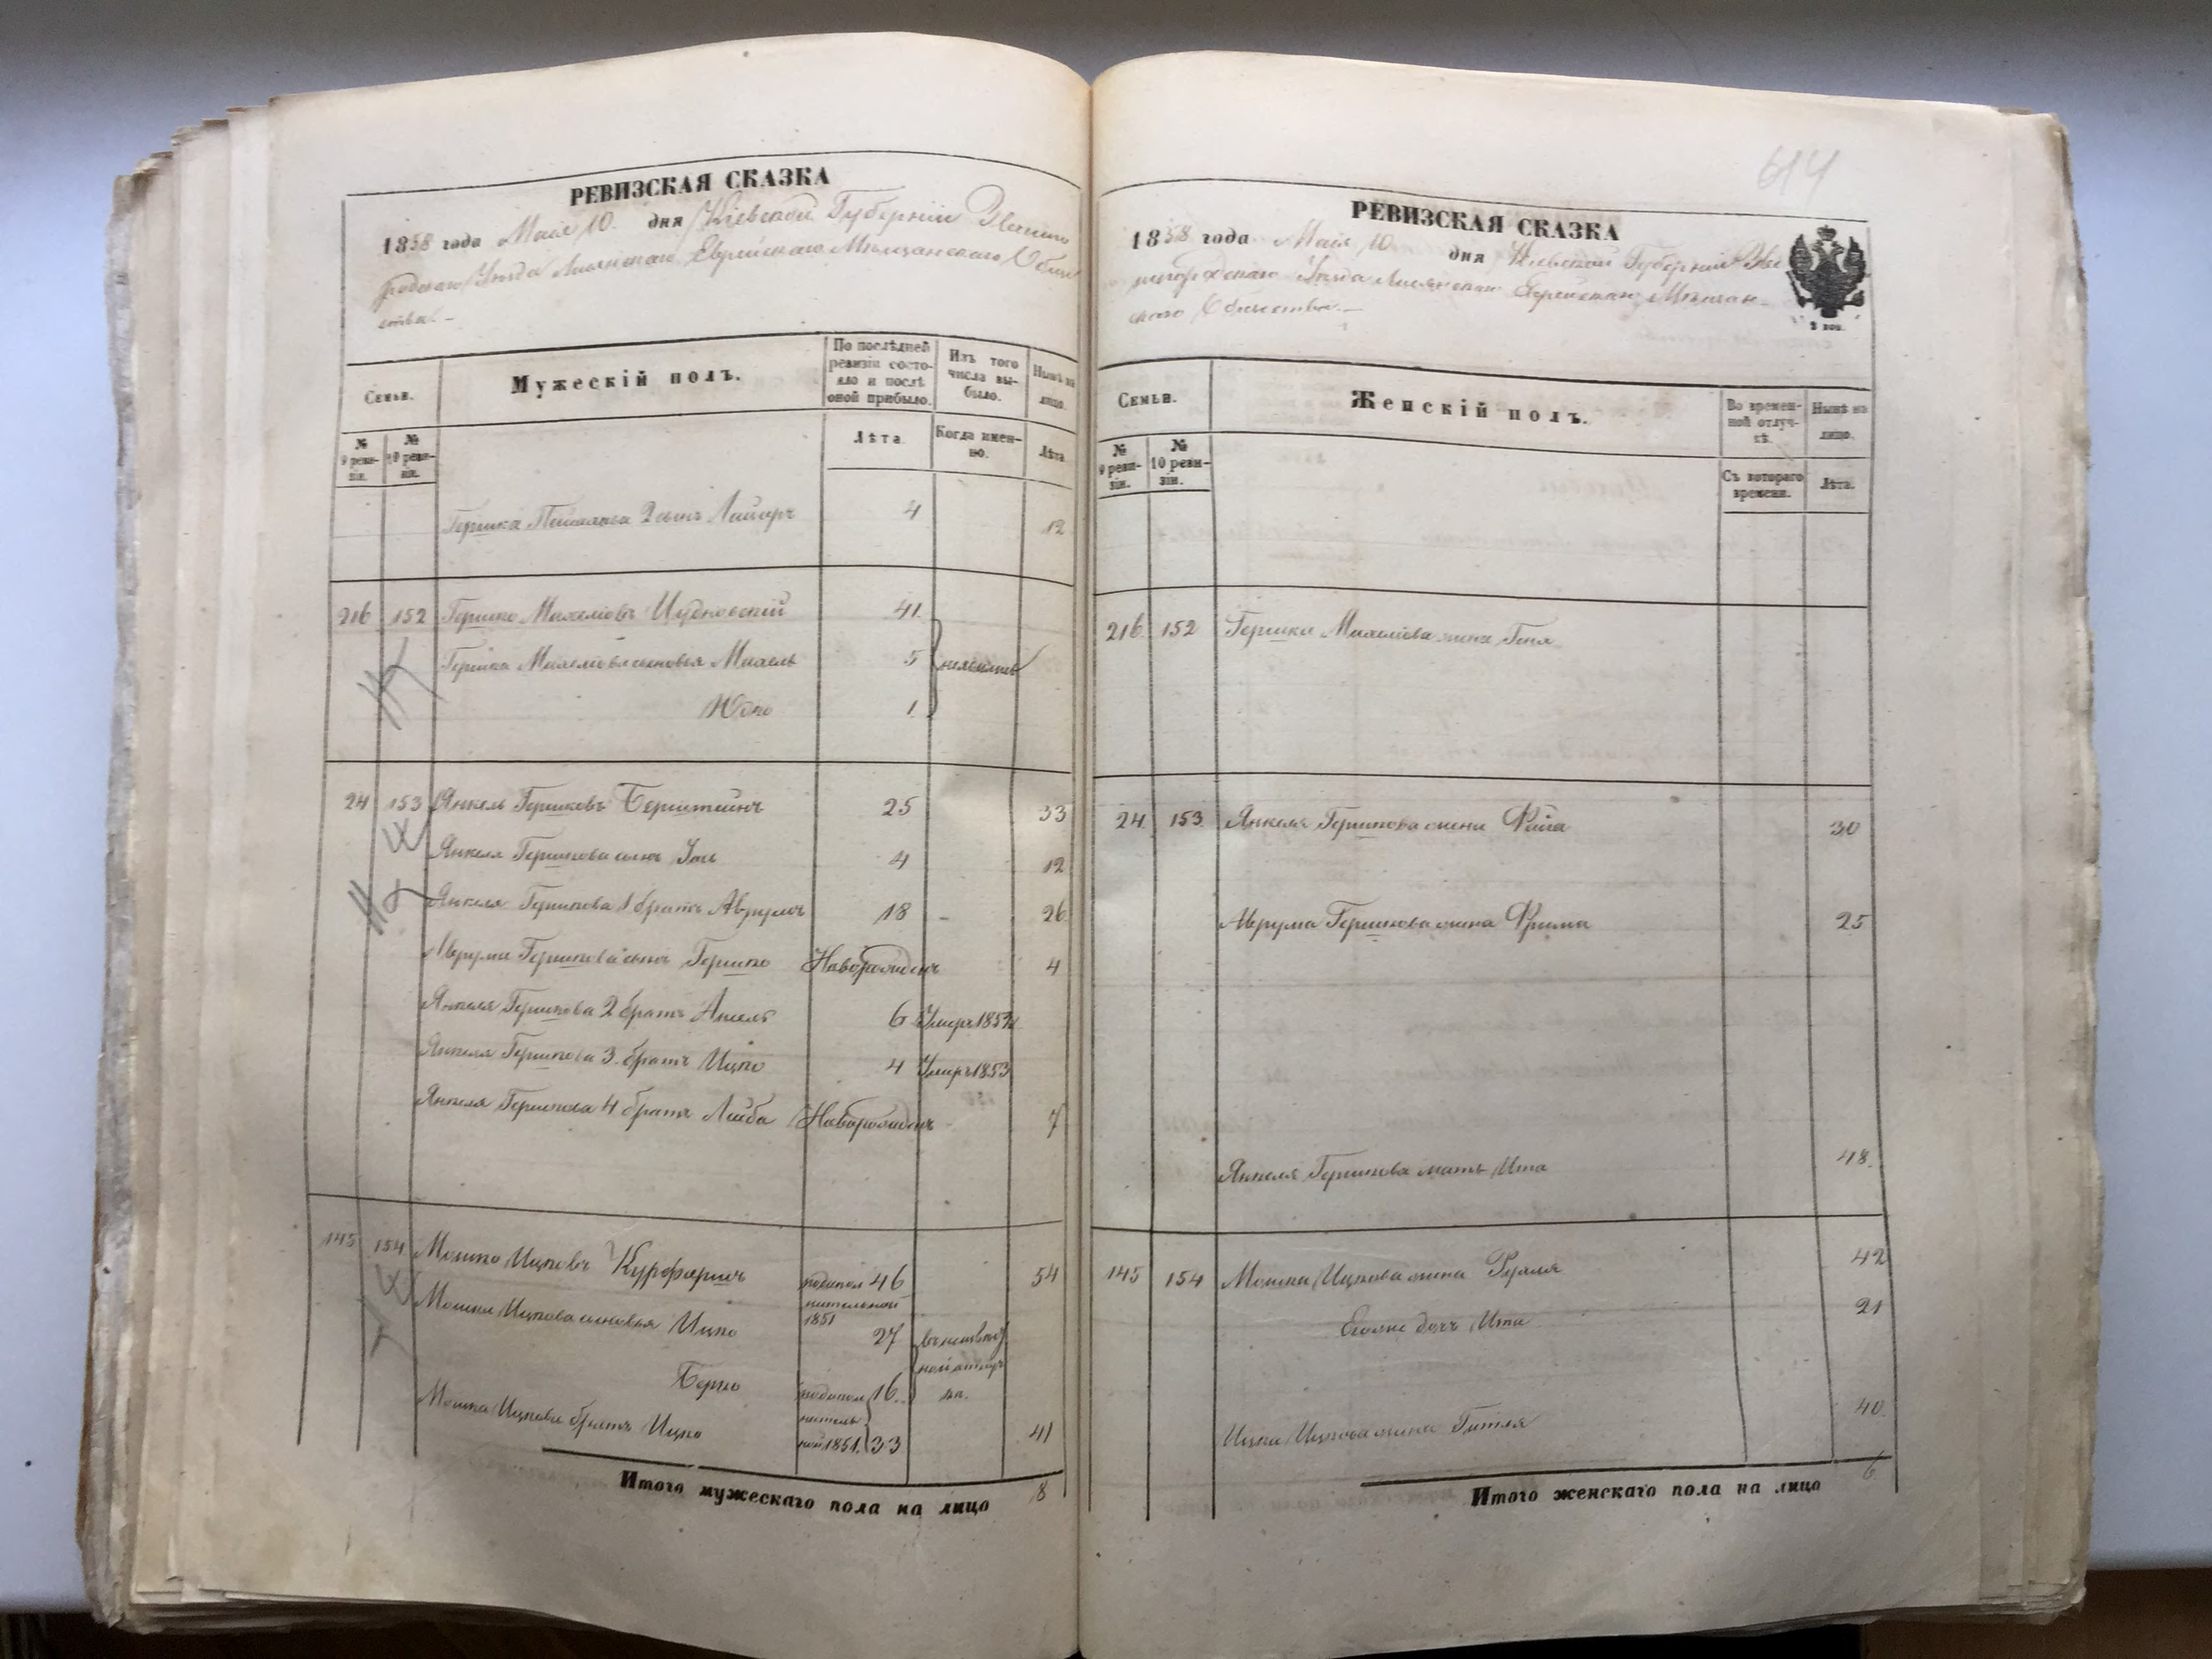 РЕВИЗСКАЯ СКАЗКА
1858 года Мая 10. дня Кіевской Губерніи Звенино
родскаго Уѣзда Лисянскаго Еврейскаго Мѣщанскаго Обще
ства.—
Семьи.
Мужескій полъ.
По послѣдней ревизіи состояло и послѣ оной прибыло.
Изъ того числа выбыло.
Нынѣ на лицо.
№ 9 ревизіи.
№ 10 ревизіи.
Лѣта
Когда именно.
Лѣта
Гершка 2 сынъ Лейзеръ 4 12
216 152 Гершко Михелiовъ 41.
Гершка Михелiова сыновья Михель 5
1
24 153 Янкель Гершковъ Бернштейнъ 25 33
Янкеля Гершкова сынъ 4 12
Янкеля Гершкова 1 братъ Аврумъ 18 - 26
Аврума Гершкова сынъ Гершко Новорожденъ 4
Янкеля Гершкова 2 братъ 6 Умеръ
Янкеля Гершкова 3. братъ Ицко 4 Умеръ 1853
Янкеля Гершкова 4 братъ Лейба Новорожденъ 7
145 154 Мошко Ицковъ подопол 46 54
нительной
1851
Мошки Ицкова сыновья Ицко 27
Берко подопол 16.
нитель
Мошка Ицкова братъ Ицко ной 1851. 33 41
Итого мужескаго пола на лицо 8
614
РЕВИЗСКАЯ СКАЗКА
1858 года Мая 10 дня Кіевской Губерніи Зве
нигородскаго Уѣзда Лисянскаго Еврейскаго Мѣщан
скаго Общества.—
2 коп.
Семьи.
Женскій полъ.
Во временной отлучкѣ.
Нынѣ на лицо.
№ 9 ревизіи.
№ 10 ревизіи.
Съ котораго времени.
Лѣта.
216 152 Гершка Михелiова жена
24 153 Янкеля Гершкова жена Фейга 30
Аврума Гершкова жена Фрима 25
Янкеля Гершкова мать Ита 48.
145 154 Мошки Ицкова жена Рухля 42
Его же дочь Ита 21
Ицка Ицкова жена Гитля 40.
Итого женскаго пола на лицо 6